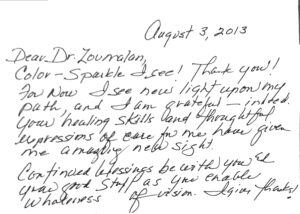 August 3, 2013
Dear Dr. Zoumalan,
Color - Sparkle I see! Thank you!!
For now I see new light upon my
path, and I am grateful - indeed.
Your healing skills and thoughtful
expressions of care for me have given
me amazing new sight.
Continued blessings be with you &
your good staff as you enable
wholeness of vision. I give thanks!